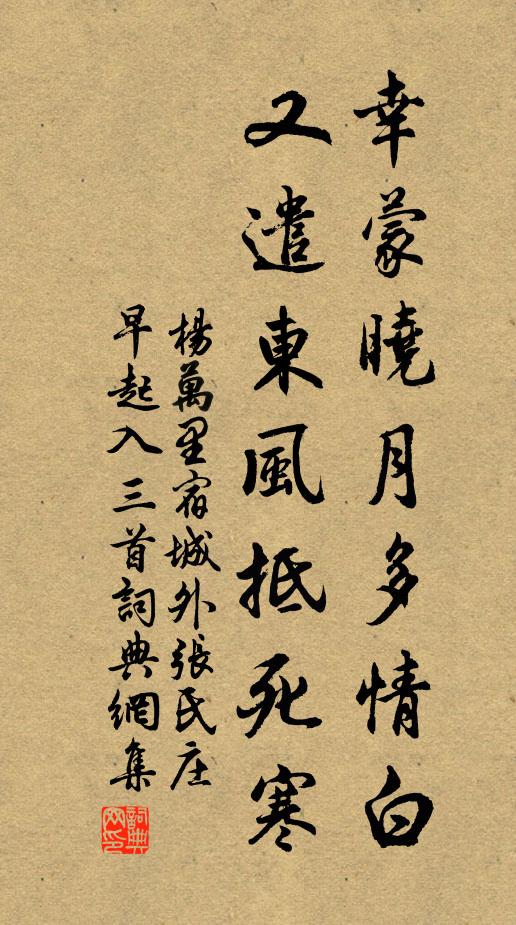 幸蒙曉月多情白
又遣東風抵死寒
楊萬里宿城外張氏庄
早起入三首詞典網集
詞典網印